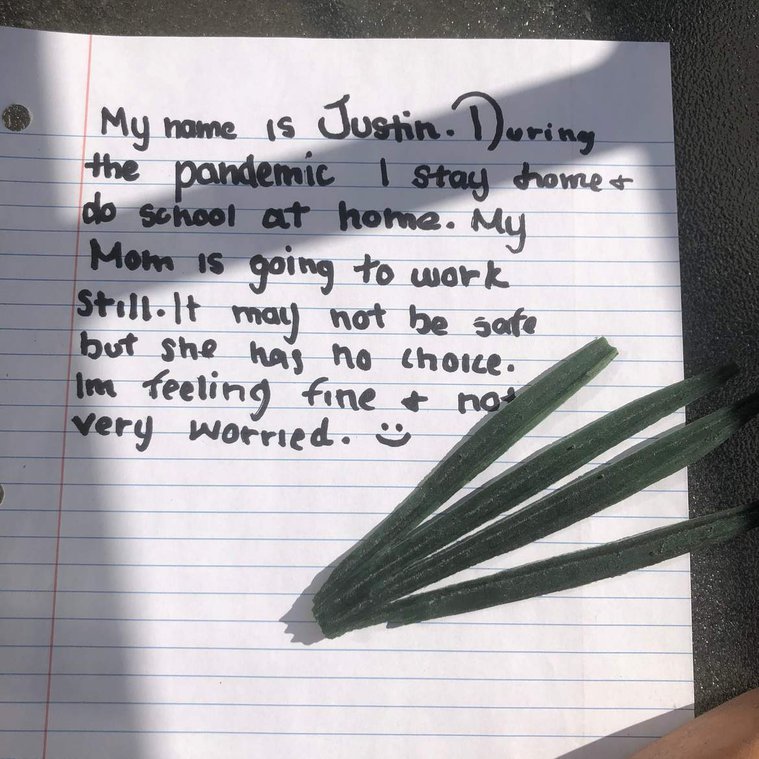 My name is Justin. During
the pandemic I stay home +
do school at home. My
Mom is going to work
still. It may not be safe
but she has no choice.
Im feeling fine + not
very worried. :)